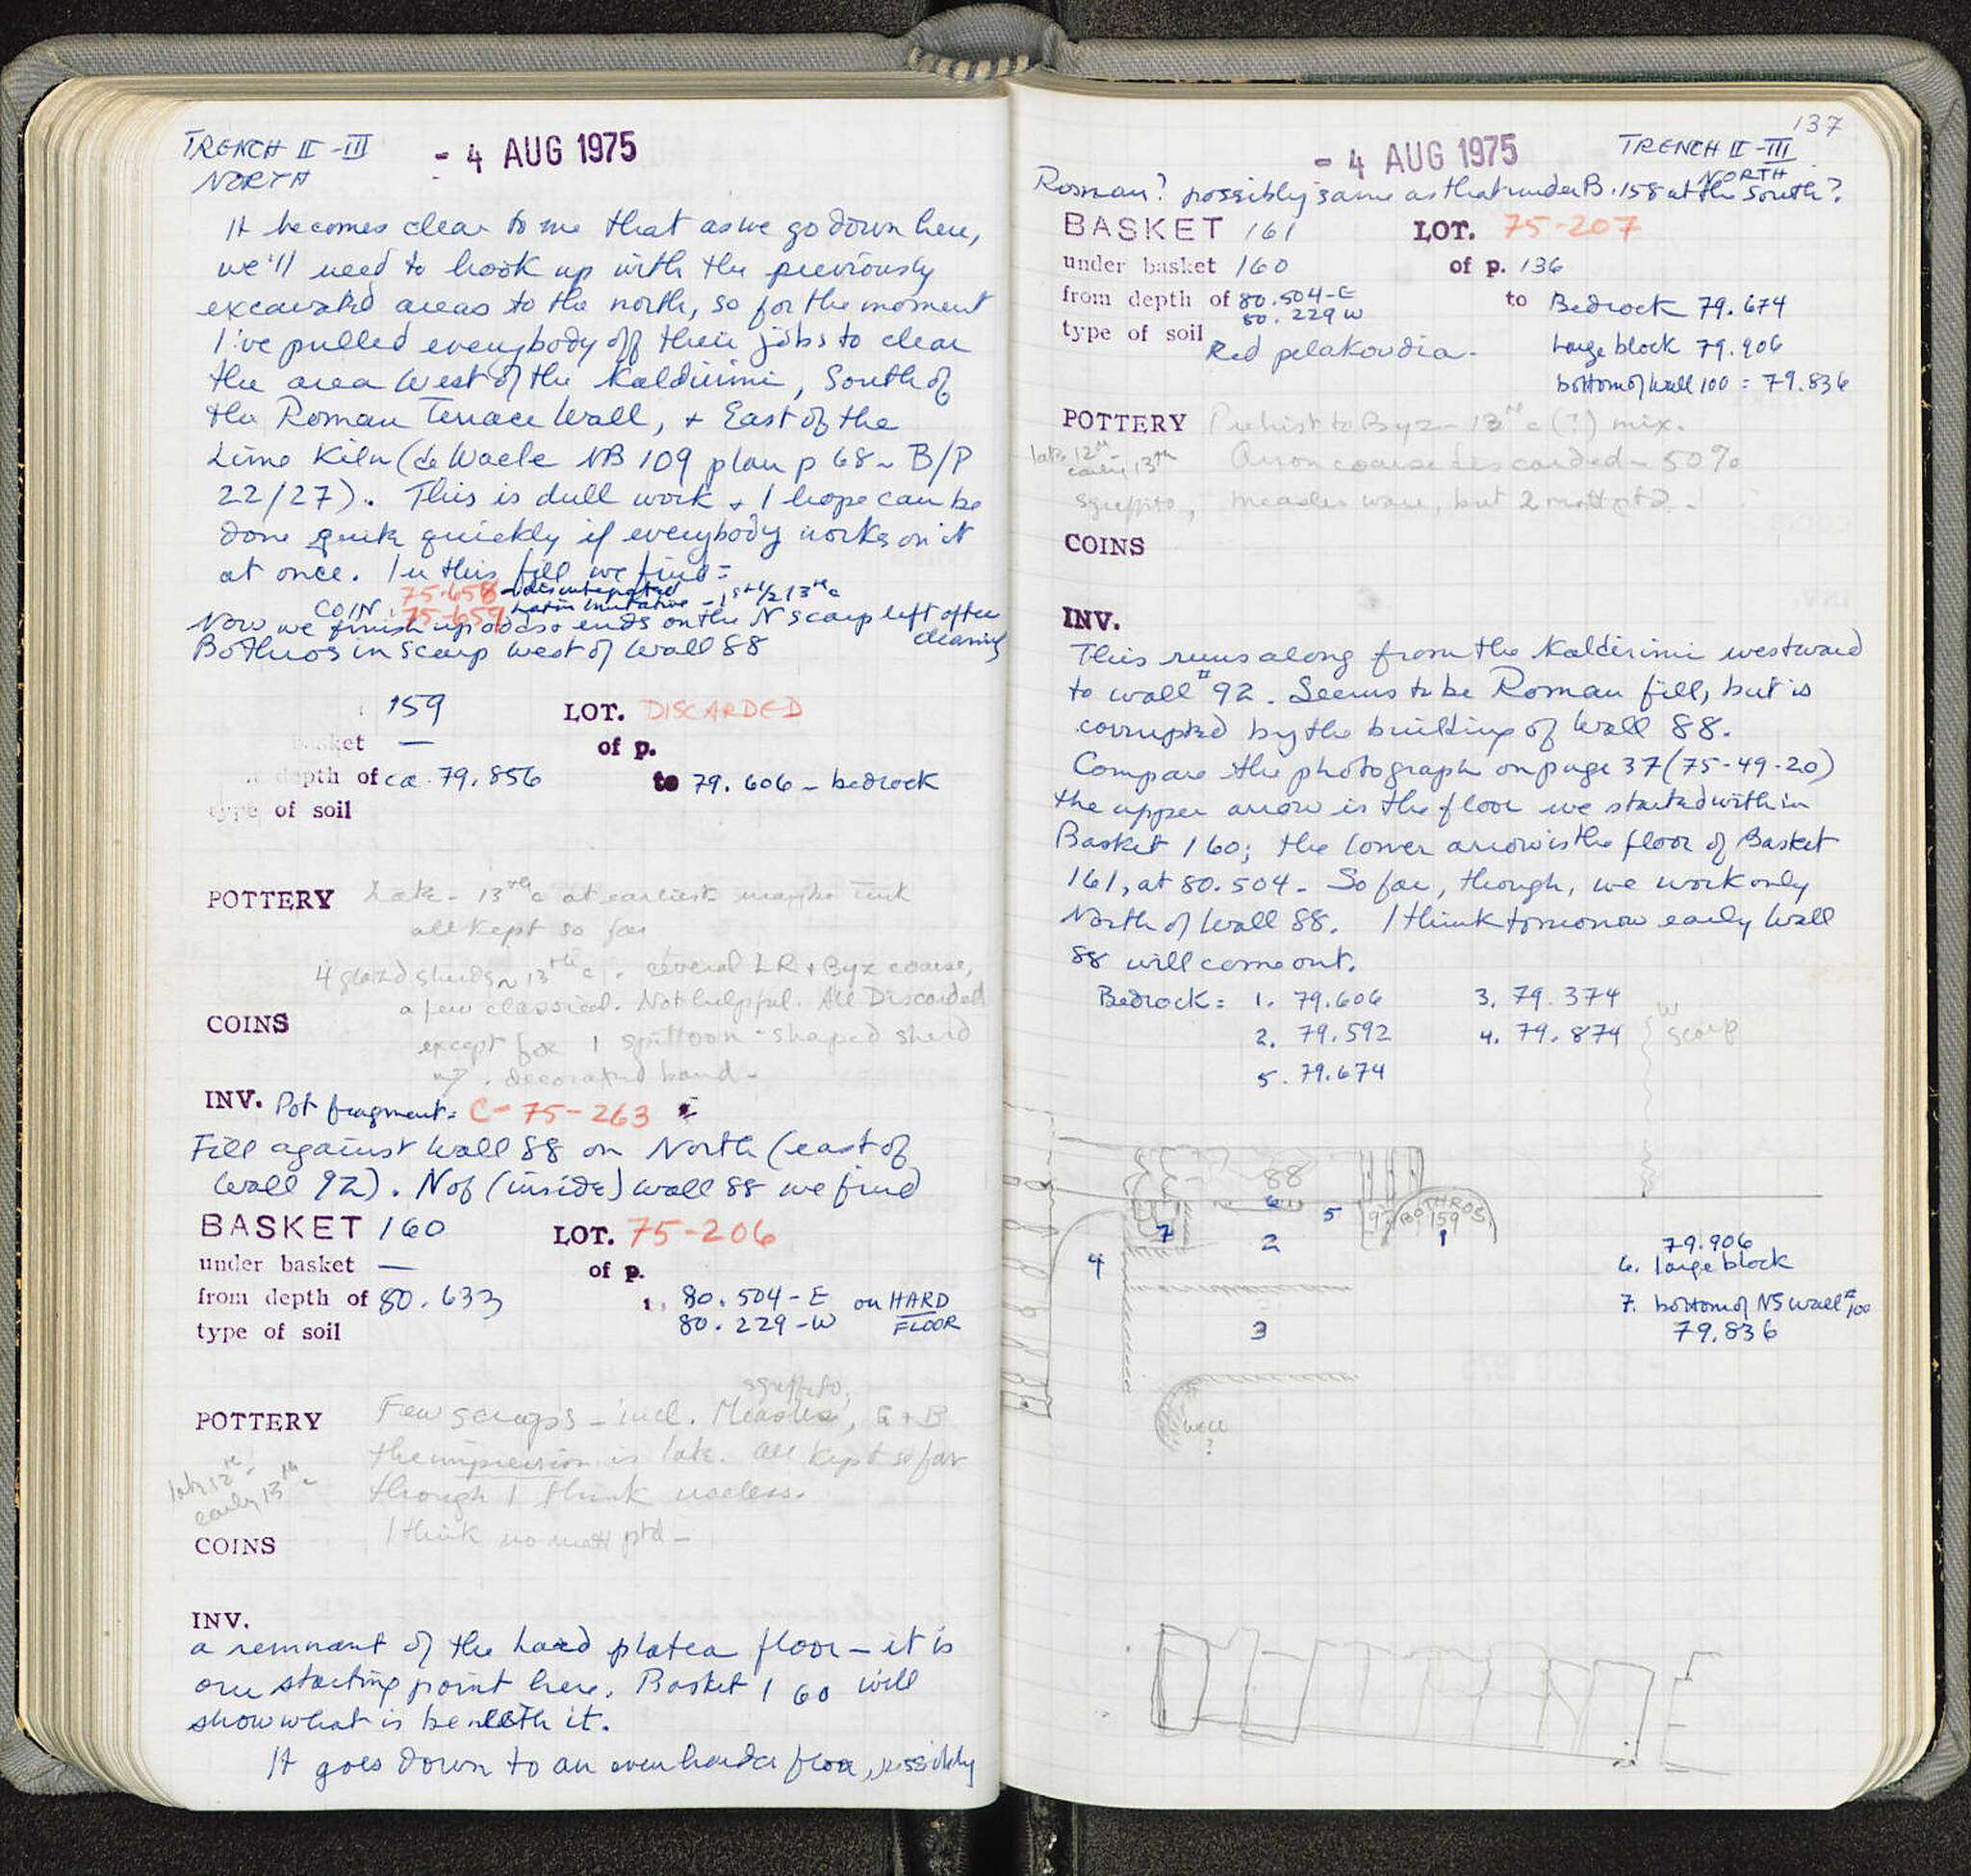 TRENCH II-III
NORTH
- 4 AUG 1975
It becomes clear to me that as we go down here,
we'll need to hook up with the previously
excavated areas to the north, so for the moment
I've pulled everybody off their jobs to clear
the area West of the Kaldirimi, South of
the Roman Terrace Wall, + East of the
Lime Kiln (de Waele NB 109 plan p 68 ~ B/P
22/27). This is dull work + I hope can be
done quickly if everybody works on it
at once. In this fill we find =
COIN: 75-658 - disintegrated
75-659 Latin Imitative - 1st 1/2 13th c
Now we finish up odds + ends on the N scarp left after
cleaning
Bothros in scarp West of Wall 88
159 LOT. DISCARDED
basket — of p.
depth of ca. 79.856 to 79.606 - bedrock
type of soil
POTTERY Late - 13th c at earliest maybe Turk
all kept so far
4 glazed sherds ~ 13th c. several LR + Byz coarse,
a few classical. Not helpful. All Discarded
COINS
except for 1 spittoon-shaped sherd
w/. decorated band -
INV. Pot fragment: C-75-263
Fill against Wall 88 on North (east of
Wall 92). N of (inside) wall 88 we find
BASKET 160 LOT. 75-206
under basket — of p.
from depth of 80.633 80.504-E on HARD
80.229-W FLOOR
type of soil
sgraffito,
POTTERY Few scraps - incl. Measles, G + B
the impression is late. All kept so far
late 12th -
early 13th c
though I think useless.
I think no matt ptd -
COINS
INV.
a remnant of the hard platea floor - it is
our starting point here. Basket 160 will
show what is beneath it.
It goes down to an even harder floor, possibly
137
- 4 AUG 1975
TRENCH II-III
NORTH
Roman? possibly same as that under B.158 at the South?
BASKET 161 LOT. 75-207
under basket 160 of p. 136
from depth of 80.504-E to Bedrock 79.674
80.229 W
type of soil Red pelakoudia -
Large block 79.906
bottom of wall 100 = 79.836
POTTERY Prehist to Byz - 13th c (?) mix.
late 12th -
early 13th
coarse discarded - 50%
sgraffito, measles ware, but 2 matt ptd.!
COINS
INV.
This runs along from the Kaldirimi westward
to wall #92. Seems to be Roman fill, but is
corrupted by the building of Wall 88.
Compare the photograph on page 37 (75-49-20)
the upper arrow is the floor we started with in
Basket 160; the lower arrow is the floor of Basket
161, at 80.504 - So far, though, we work only
North of Wall 88. I think tomorrow early Wall
88 will come out.
Bedrock = 1. 79.606 3. 79.374
2. 79.592 4. 79.874
5. 79.674
W
scarp
88
6
5
92
BOTHROS
159
1
7
2
4
3
well
?
79.906
6. large block
7. bottom of NS wall #100
79.836